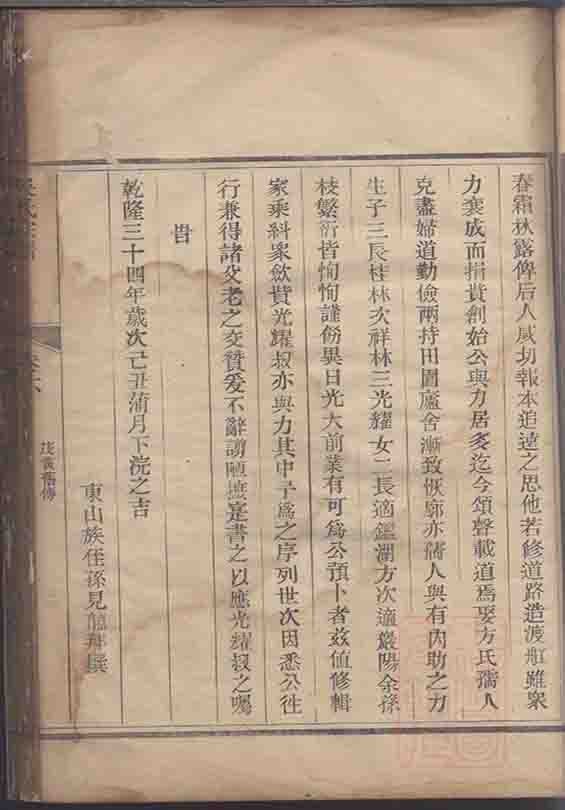 春霜秋露俾后人咸切報本追遠之思他若修道路造渡舡雖衆
力襄成而捐貲創始公與力居多迄今頌聲載道焉娶方氏孺人
克盡婦道勤儉兩持田園廬舍漸致恢廓亦藉人與有內助之力
生子三長桂林次祥林三光耀女二長適鑑湖方次適巖陽余孫
枝繁衍皆恂恂謹飭異日光大前業有可爲公預卜者茲值修輯
家乘科衆歛貲光耀叔亦與力其中予爲之序列世次因悉公徃
行兼得諸父老之交贊爰不辭謭陋摭寔書之以應光耀叔之囑
旹
乾隆三十四年歲次己丑蒲月下浣之吉
東山族侄孫見龍拜撰
傳